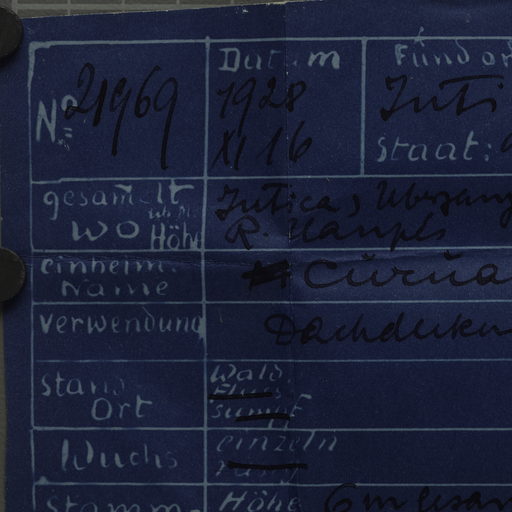 No 21969
Datum
1928
XI 16
Fundor
Juti
Staat:
gesammelt
wo Höhe
Jutica, Übergang
R.
einheim.
Name
Curua
Verwendung
Dachdecken
Stand
Ort
Wald
Fluss
Sumpf
Wuchs
einzeln
Stamm
Höhe 6 m gesam